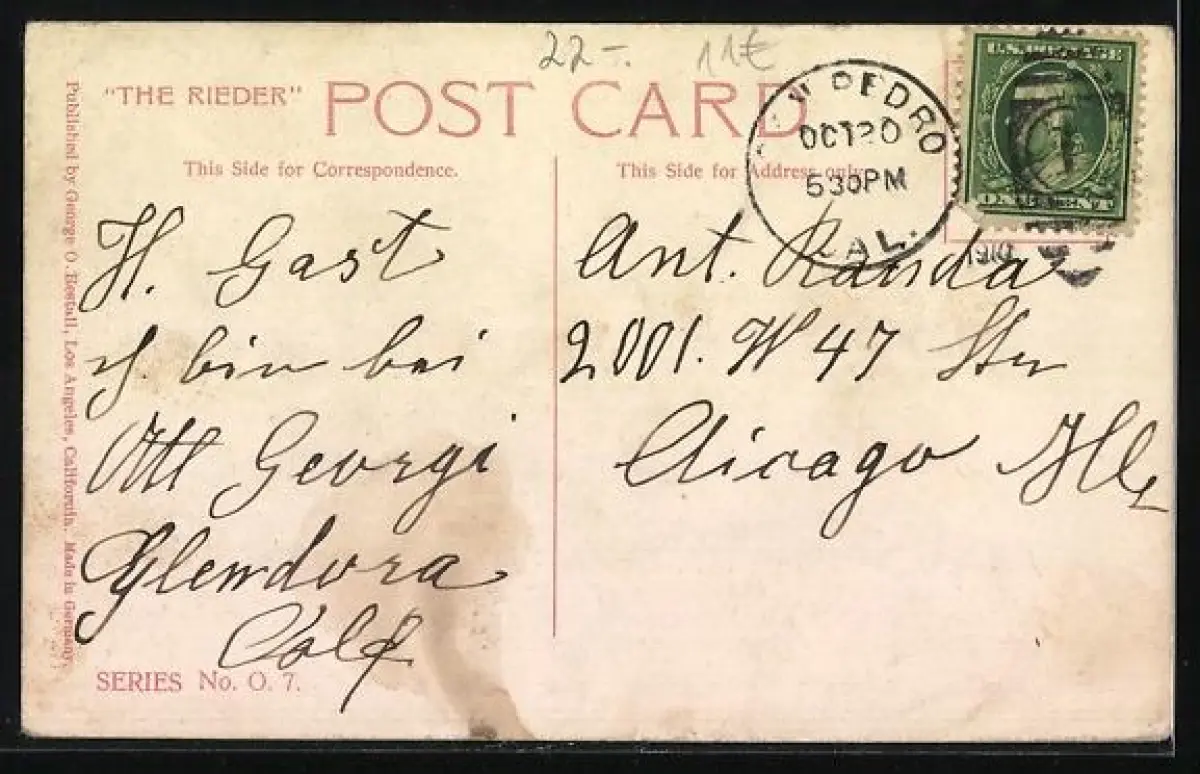 22-. 11€
"THE RIEDER" POST CARD
This Side for Correspondence.
This Side for Address only.
Published by George O. Restall, Los Angeles, California. Made in Germany.
PEDRO
OCT 20
530PM
CAL.
1910
H. Gast
ich bin bei
Ott Georgi
Glendora
Calf
SERIES No. O. 7.
Ant. Randa
2001. W 47 Str
Chicago Ills